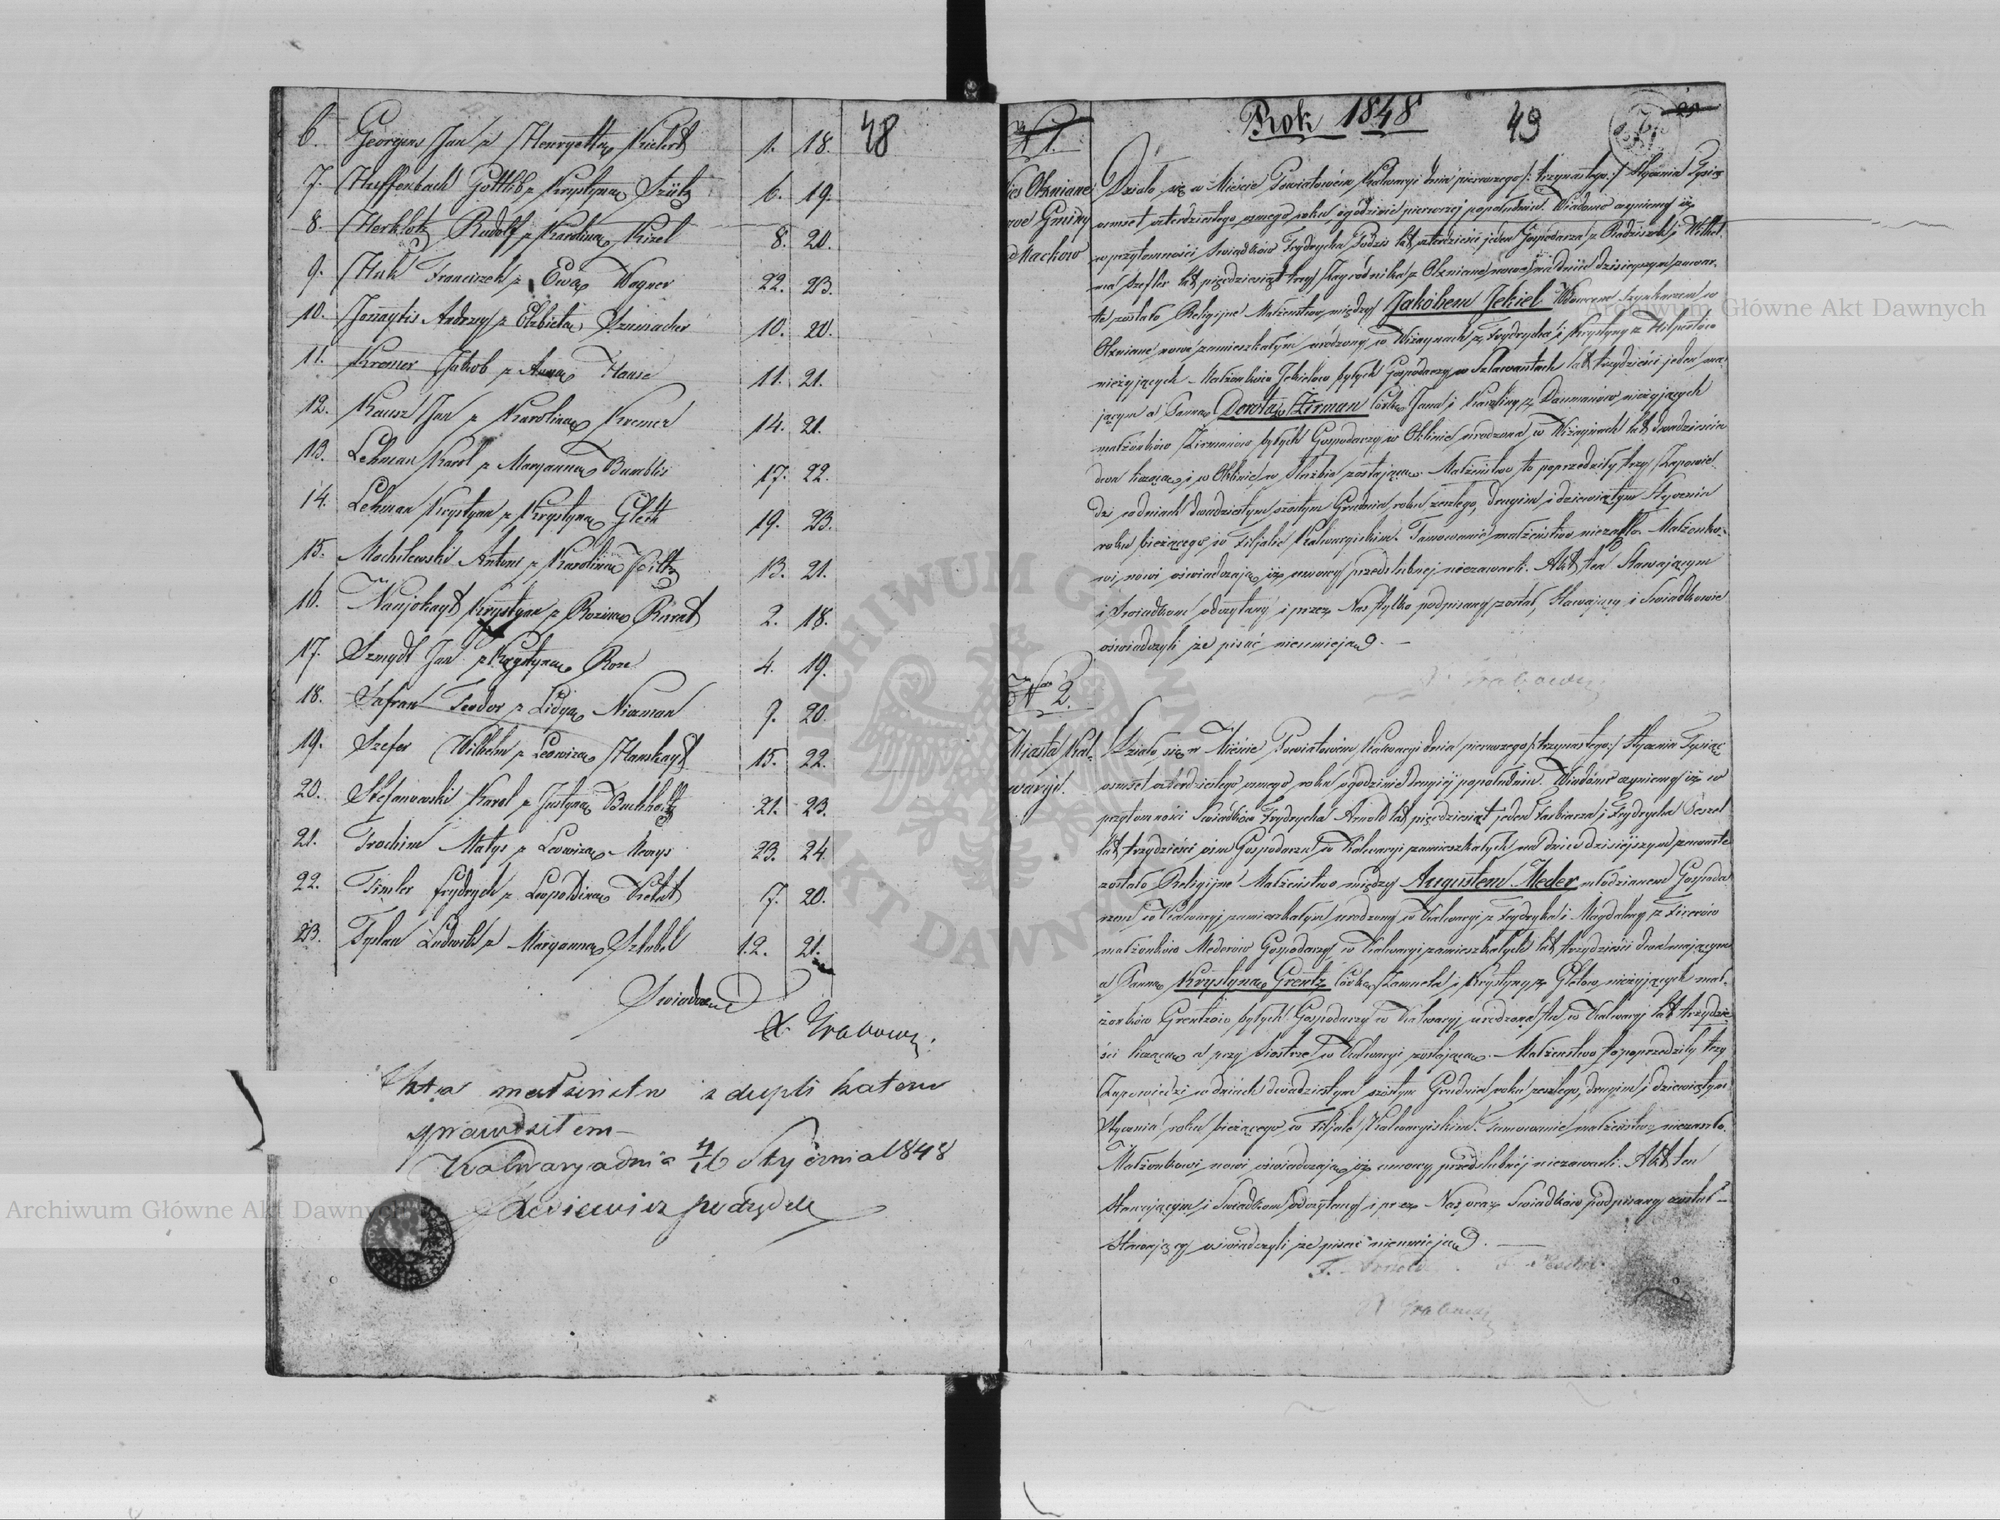 6. Georgens Jan z Henryetta Kukert 1. 18. 48
7. Huffenbach Gottlib z Krystyna Szütz 6. 19.
8. Herklotz Rudolf z Karolina Kizel 8. 20.
9. Huk Franciszek z Ewa Wagner 22. 23.
10. Jonaytis Andrzey z Elżbieta Szumacher 10. 20.
11. Kromer Jakob z Anna Hause 11. 21.
12. Kausz Jan z Karolina Kremer 14. 21.
13. Lehman Karol z Maryanna Bumblis 17. 22.
14. Lehman Krystyan z Krystyna Glett 19. 23.
15. Mochilewski Antoni z Karolina 13. 21.
16. Naujokayt Krystyan z Rozina 2. 18.
17. Szmydt Jan z Krystyna Roze 4. 19.
18. Safran Teodor z Lidya Nieman 7. 20.
19. Szefer Wilhelm z Lowiza 15. 22.
20. Stefanowski Karol z Justyna Buchholtz 21. 23.
21. Trochim Matys z Lowiza 23. 24.
22. Timler Frydrych z Leopoldina 7. 20.
23. Typlan Ludwik z Maryanna Sztubel 12. 21.
Świadczę
X.
małżeństw z dupli katem
sprawdziłem
Kalwarya dnia 4/16 Stycznia 1848
podsędek
Rok 1848 49
№ 1.
Działo się w Mieście Powiatowém Kalwaryi dnia pierwszego /: trzynastego :/ Stycznia Tysiąc
ośmset czterdziestego ósmego roku o godzinie pierwszej popołudniu. Wiadomo czyniemy iż
w przytomności Świadków Frydrycha lat czterdzieści jeden Gospodarza z Radziszek i Wilhel
ma Szefler lat pięćdziesiąt trzy Zagrodnika z Okmiane nowe na dniu dzisiejszym zawar-
te zostało Religijne Małżeństwo między Jakóbem Jekiel Wdowcem w
Okmiane nowe zamieszkałym urodzony w Wiżaynach z Frydrycha i Krystyny z
nieżyjących Małżonków Jekielow byłych Gospodarzy w lat trzydzieści jeden ma-
jącym a Panną Dorotą Zirman Córką Jana i Karoliny z Daumanów nieżyjących
małżonków Zirmanów byłych Gospodarzy w Oklinie urodzona w Wiżaynach lat dwadzieścia
dwa licząca i w Oklinie w Służbie zostająca. Małżeństwo to poprzedziły trzy Zapowie-
dzi w dniach dwudziestym szóstym Grudnia roku zeszłego, drugim i dziewiątym Stycznia
roku bieżącego w Filjale Kalwaryiskim. Tamowanie małżeństwa niezaszło. Małżonko-
wi nowi oświadczają iż umowy przedślubnej niezawarli. Akt ten Stawającym
i Świadkom odczytany i przez Nas tylko podpisany został, Stawający i Świadkowie
oświadczyli że pisać nieumieją.
№ 2.
Miasta Kal-
waryi.
Działo się w Mieście Powiatowém Kalwaryi dnia pierwszego /: trzynastego :/ Stycznia Tysiąc
ośmset czterdziestego ósmego roku o godzinie drugiéj popołudniu. Wiadomo czyniemy iż w
przytomności Świadków Frydrycha Arnold lat pięćdziesiąt jeden Farbiarza i Frydrycha
lat trzydzieści ośm Gospodarza w Kalwaryi zamieszkałych na dniu dzisiejszym zawarte
zostało Religijne Małżeństwo między Augustem Meder młodzianem Gospoda
rzem w Kalwaryi zamieszkałym urodzony w Kalwaryi z Frydryka i Magdaleny z
małżonków Mederów Gospodarzy w Kalwaryi zamieszkałych lat trzydzieści dwa mającym
a Panną Krystyną Grentz Córką Samuela i Krystyny z nieżyjących mał-
żonków Grentzów byłych Gospodarzy w Kalwaryi urodzona w Kalwaryi lat trzydzie-
ści licząca a przy Siostrze w Kalwaryi zostająca. Małżeństwo to poprzedziły trzy
Zapowiedzi w dniach dwudziestym szóstym Grudnia roku zeszłego, drugim i dziewiątym
Stycznia roku bieżącego w Filjale Kalwaryiskim. Tamowanie małżeństwa niezaszło.
Małżonkowi nowi oświadczają iż umowy przedślubnéj niezawarli. Akt ten
Stawającym i Świadkom odczytany i przez Nas oraz Świadków podpisany został
Stawający oświadczyli że pisać nieumieją.
Archiwum Główne Akt Dawnych
Archiwum Główne Akt Dawnych
ARCHIWUM GŁÓWNE AKT DAWNYCH